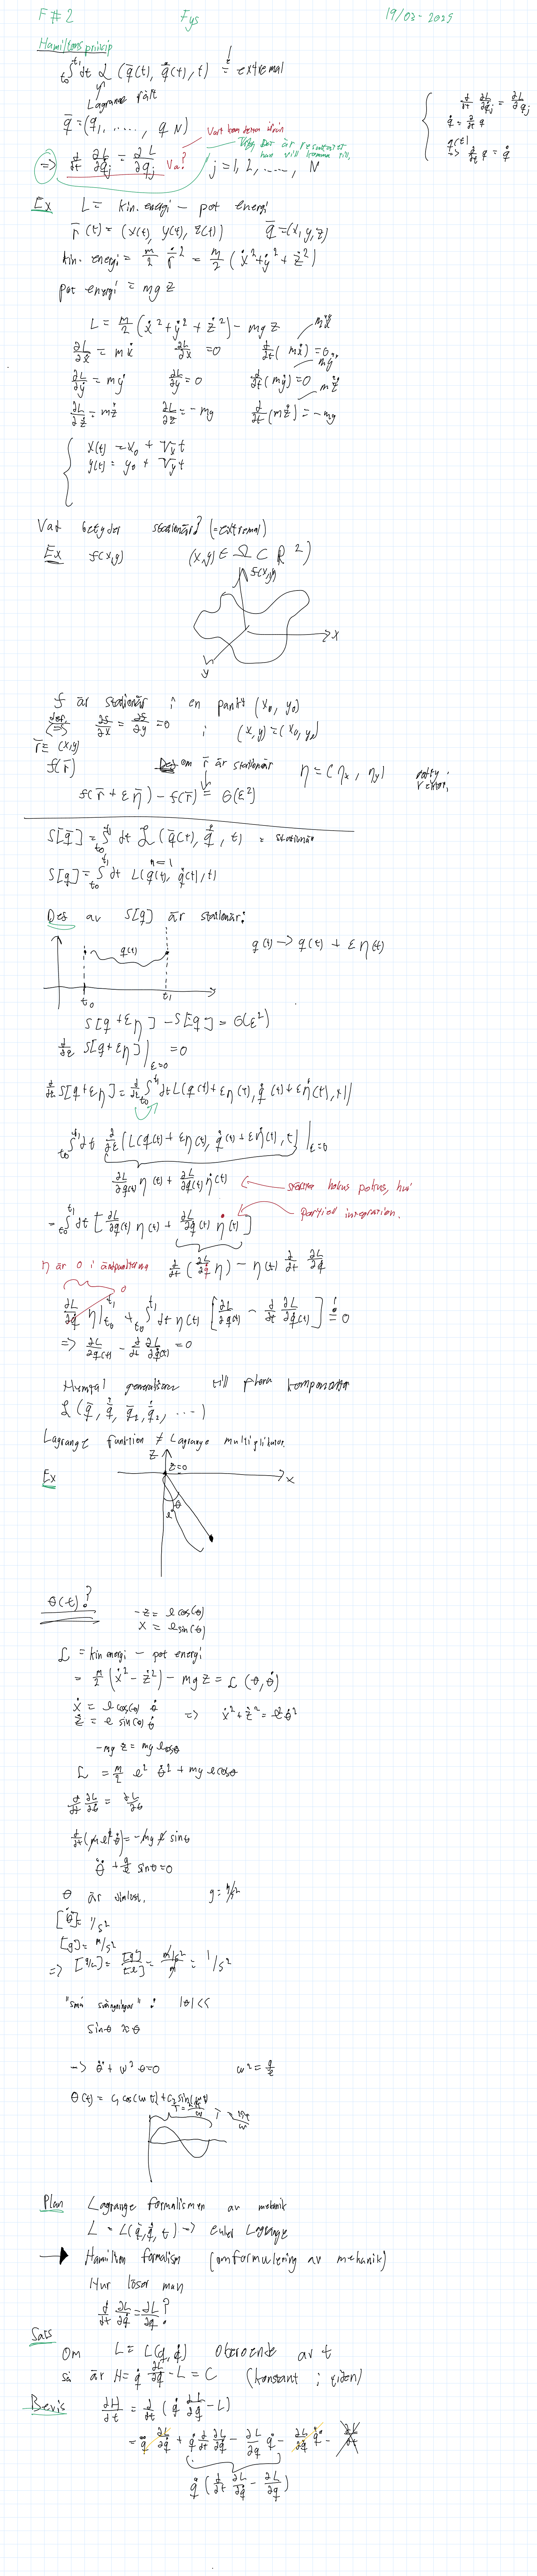 F#2 Fys 19/03-2025
Hamiltons princip
∫_{t0}^{t1} dt ℒ (q̄(t), q̄̇(t), t) = extremal
Lagrange fält
q̄ = (q1, ....., qN)
=> d/dt ∂L/∂q̇j = ∂L/∂qj Va? j = 1, 2, ...., N
Ex L = kin. energi - pot energi
r̄(t) = (x(t), y(t), z(t)) q̄ = (x, y, z)
kin. energi = m/2 r̄̇² = m/2 (ẋ² + ẏ² + ż²)
pot energi = mgz
L = m/2 (ẋ² + ẏ² + ż²) - mgz
∂L/∂ẋ = mẋ ∂L/∂x = 0 d/dt (mẋ) = 0 mẍ
∂L/∂ẏ = mẏ ∂L/∂y = 0 d/dt (mẏ) = 0 mÿ
∂L/∂ż = mż ∂L/∂z = -mg d/dt (mż) = -mg mz̈
x(t) = x0 + Vx t
y(t) = y0 + Vy t
Vad betyder stationär? (=extremal)
Ex f(x,y) (x,y) ∈ Ω ⊂ R²)
f(x,y)
x
y
f är stationär i en punkt (x0, y0)
def <=> ∂f/∂x = ∂f/∂y = 0 i (x,y) = (x0, y0)
r̄ = (x,y)
f(r̄) om r̄ är stationär η = (ηx, ηy)
f(r̄ + εη̄) - f(r̄) = O(ε²)
S[q̄] = ∫_{t0}^{t1} dt ℒ (q̄(t), q̄̇, t) = stationär
n=1
S[q] = ∫_{t0}^{t1} dt L(q(t), q̇(t), t)
Def av S[q] är stationär:
q(t) q(t) -> q(t) + εη(t)
t0 t1
S[q + εη] - S[q] = O(ε²)
d/dε S[q + εη] |_{ε=0} = 0
∫_{t0}^{t1} dt d/dε (L(q(t) + εη(t), q̇(t) + εη̇(t), t) |_{ε=0}
∂L/∂q(t) η(t) + ∂L/∂q̇(t) η̇(t) hokus pokus, hur
= ∫_{t0}^{t1} dt [∂L/∂q(t) η(t) + ∂L/∂q̇(t) η̇(t)] partiell integration.
η är 0 i ändpunkterna d/dt (∂L/∂q̇ η) - η(t) d/dt ∂L/∂q̇
∂L/∂q̇ η |_{t0}^{t1} + ∫_{t0}^{t1} dt η(t) [∂L/∂q(t) - d/dt ∂L/∂q̇(t)] = 0
=> ∂L/∂q(t) - d/dt ∂L/∂q̇(t) = 0
generaliserar till flera komponenter
Lagrange funktion ≠ Lagrange multiplikator
Ex
z
z=0
x
θ
l
θ(t)?
-z = l cos(θ)
x = l sin(θ)
ℒ = kin energi - pot energi
= m/2 (ẋ² - ż²) - mgz = ℒ(θ, θ̇)
ẋ = l cos(θ) θ̇
ż = l sin(θ) θ̇ => ẋ² + ż² = l²θ̇²
-mgz = mg l cosθ
ℒ = m/2 l² θ̇² + mg l cosθ
d/dt ∂L/∂θ̇ = ∂L/∂θ
d/dt (ml²θ̇) = -mg l sinθ
θ̈ + g/l sinθ = 0
θ är g = m/s²
[θ̈] = 1/s²
[g] = m/s²
=> [g/l] = [g]/[l] = (m/s²)/m = 1/s²
"små svängningar": |θ| <<
sinθ ≈ θ
-> θ̈ + ω²θ = 0 ω² = g/l
θ(t) = c1 cos(ωt) + c2 sin(ωt)
T = 2π/ω
Plan Lagrange formalismen av mekanik
L = L(q, q̇, t) -> Euler Lagrange
-> Hamilton formalism (omformulering av mekanik)
Hur löser man
d/dt ∂L/∂q̇ = ∂L/∂q ?
Sats
Om L = L(q, q̇) oberoende av t
så är H = q̇ ∂L/∂q̇ - L = C (konstant i tiden)
Bevis dH/dt = d/dt (q̇ ∂L/∂q̇ - L)
= q̈ ∂L/∂q̇ + q̇ d/dt ∂L/∂q̇ - ∂L/∂q q̇ - ∂L/∂q̇ q̈ - ∂L/∂t
q̇ (d/dt ∂L/∂q̇ - ∂L/∂q)